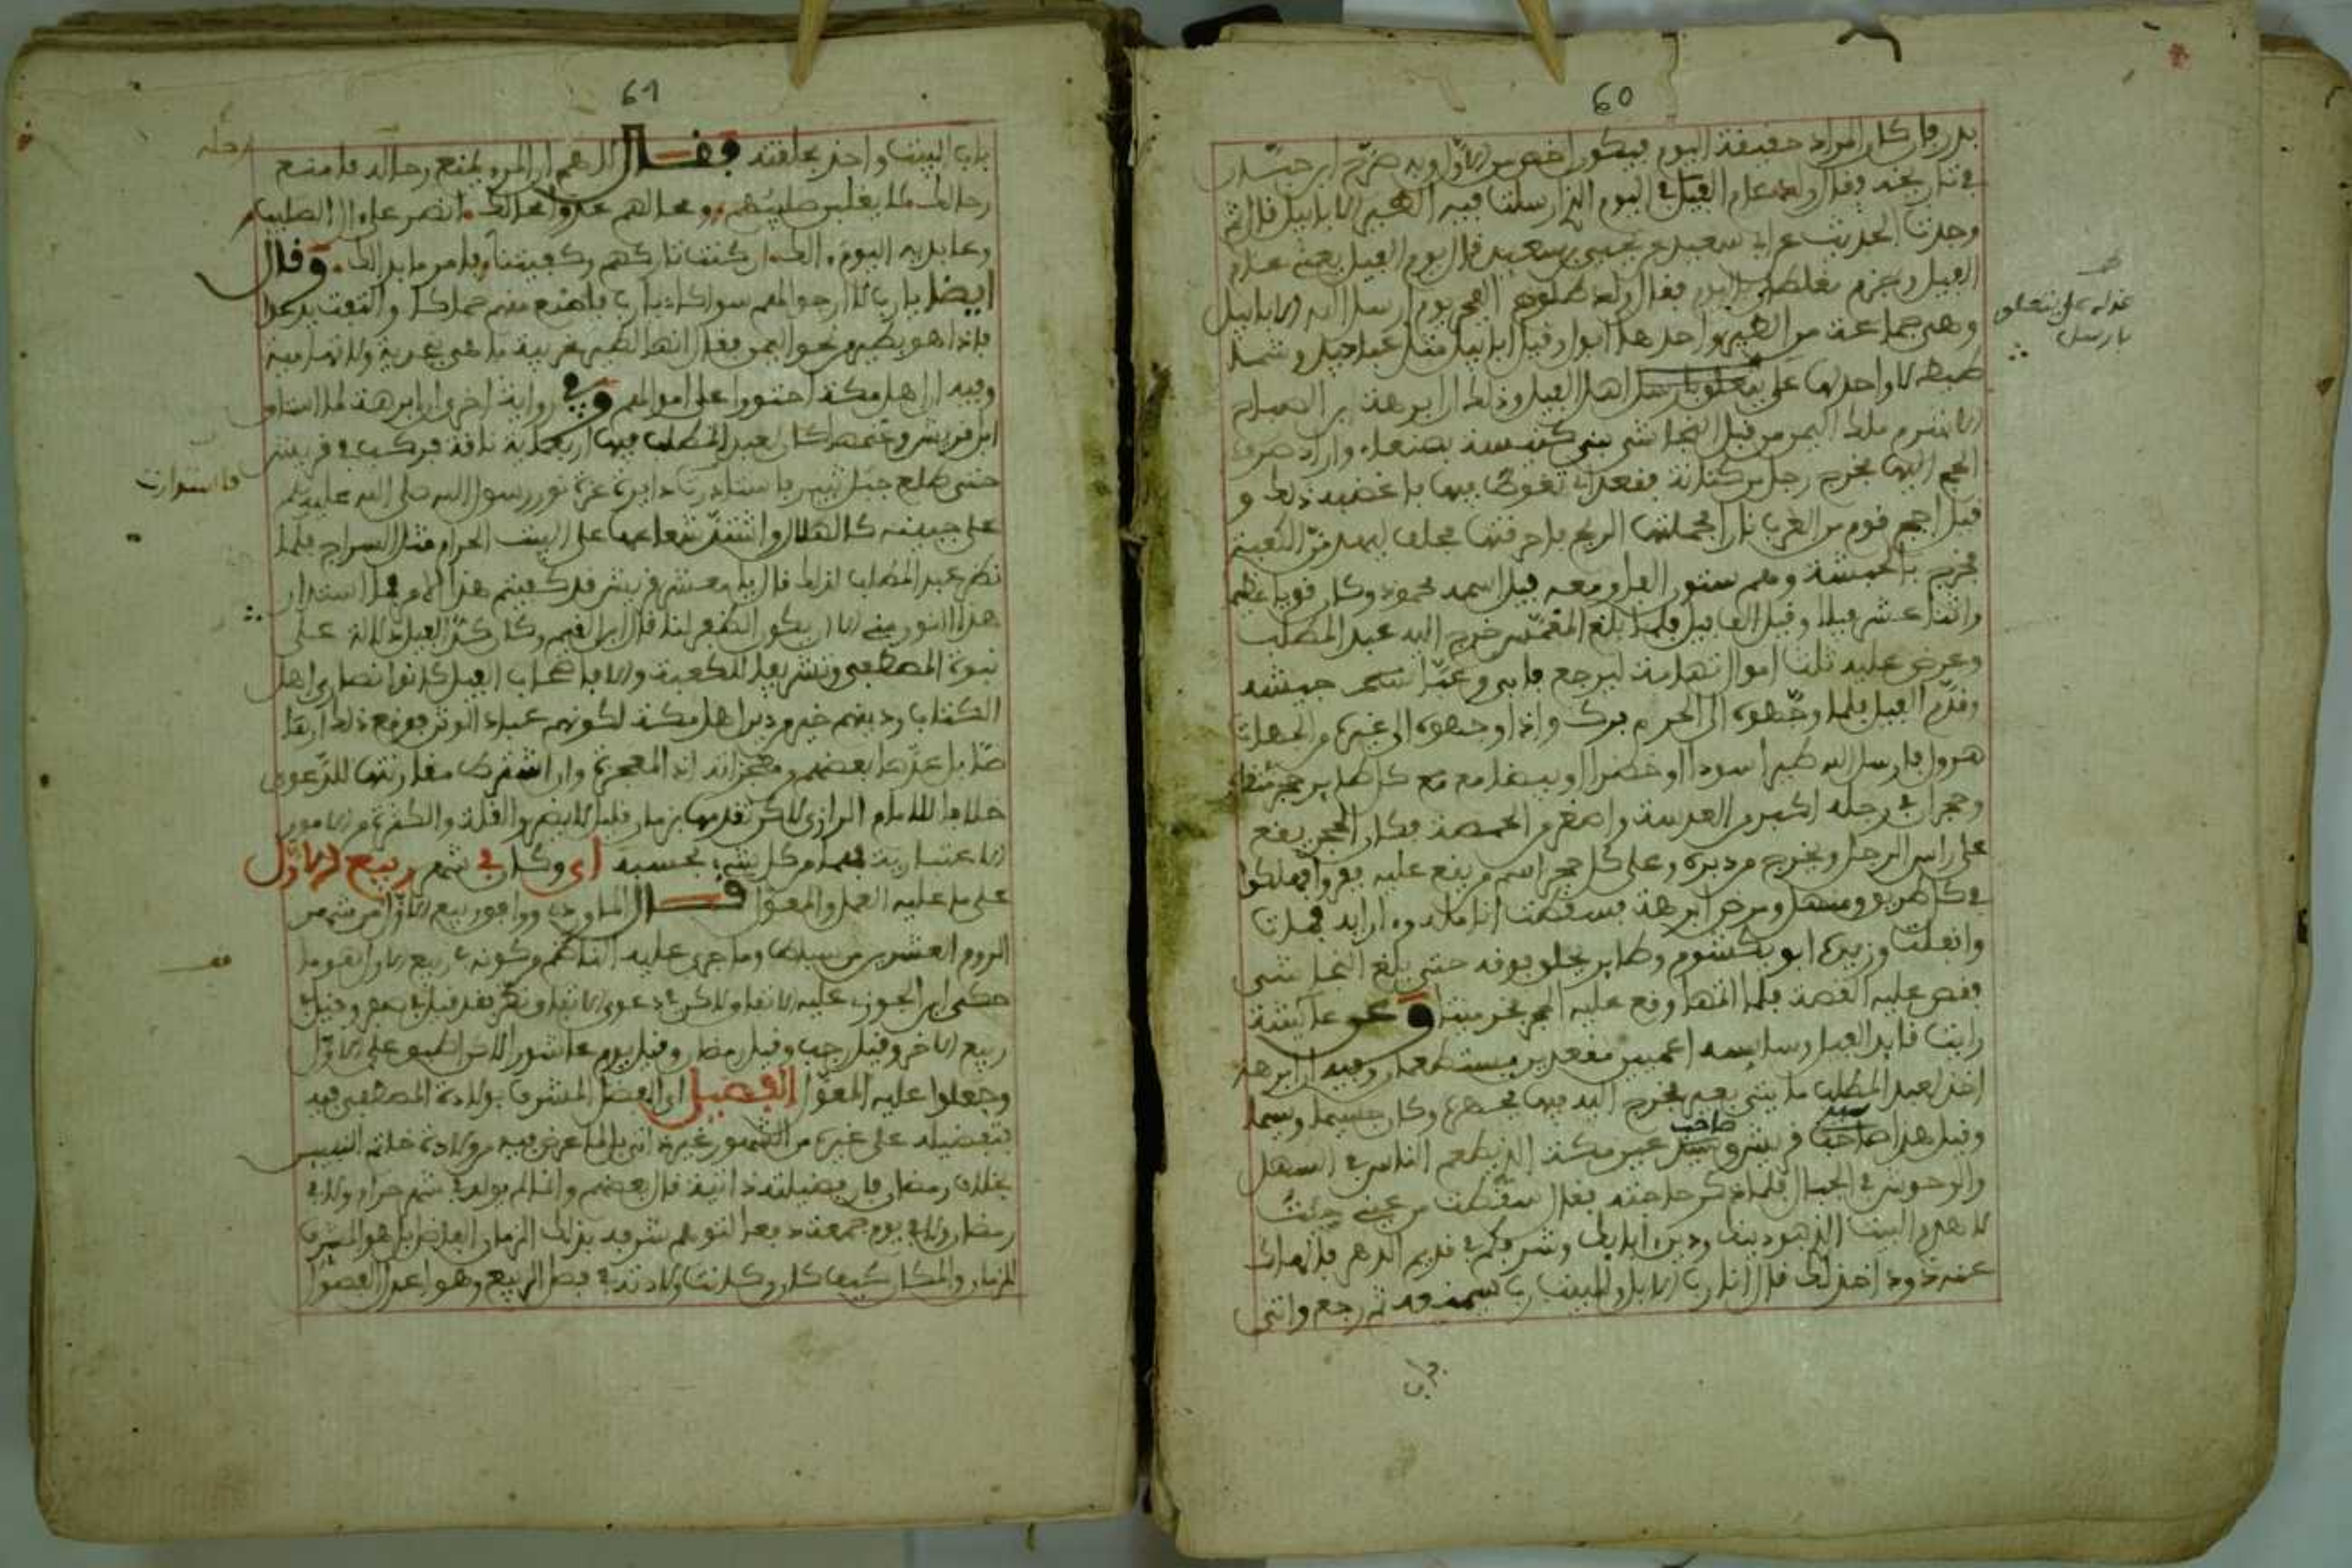 60
بدر فان كان المراد حقيقة اليوم فيكون اخص من الاول وبه صرح ابن حبان
في تاريخه فقال ولد عام الفيل في اليوم الذي ارسلت فيه الطير الابابيل قال ثم
وجدت الحديث عن ابن سعيد عن يحيى بن سعيد قال يوم الفيل يعني عام
الفيل وجزم فقال ولد طلوع الفجر يوم ارسل الله الابابيل
وهي جماعة من الطير واحدها ابول وقيل ابابيل مثل عباديد
لا واحد لها على يتعلق بارسل اهل الفيل وذلك ان ابرهة بن الصباح
الاشرم ملك اليمن من قبل النجاشي بنى كنيسة بصنعاء واراد صرف
الحج اليها فخرج رجل من كنانة فقعد اي تغوط فيها فاغضبه ذلك و
قيل اجج قوم من العرب نارا فحملتها الريح فاحرقتها فحلف ليهدمن الكعبة
فخرج بالحبشة وهم ستون الفا ومعه فيل اسمه محمود وكان قويا عظيما
واثنا عشر فيلا وقيل الف فيل فلما بلغ المغمس خرج اليه عبد المطلب
وعرض عليه ثلث اموال تهامة ليرجع فابى وعبا جيشه
وقدم الفيل فلما وجهوه الى الحرم برك واذا وجهوه الى غيره من الجهات
هرول فارسل الله طيرا سودا او خضرا او بيضا مع كل طاير حجر في منقاره
وحجران في رجله اكبر من العدسة واصغر من الحمصة فكان الحجر يقع
على راس الرجل ويخرج من دبره وعلى كل حجر اسم من يقع عليه ففروا فهلكوا
في كل طريق ومنهل ومرض ابرهة فسقطت انامله وما
وانفلت وزيره ابو يكسوم وطاير يحلق فوقه حتى بلغ النجاشي
فقص عليه القصة فلما اتمها وقع عليه الحجر فخر ميتا وعن عايشة
رايت قايد الفيل وسايسه اعميين مقعدين يستطعمان وفيه ان ابرهة
اخذ لعبد المطلب مايتي بعير فخرج اليه فيها فحضر وكان جسيما وسيما
وقيل هذا صاحب قريش و صاحب عير مكة الذي يطعم الناس في السهل
والوحوش في الجبال فلما ذكر حاجته فقال سقطت من عيني جئت
لاهدم البيت الذي هو دينك ودين ابايك وشرفكم في قديم الدهر فالهاك
عنه ذود اخذ لك قال انا رب الابل وللبيت رب سيمنعه ثم رجع واتى
على يتعلق
بارسل
باب
61
باب البيت واخذ بحلقته فقال اللهم ان المرء يمنع رحله فامنع
رحالك لا يغلبن صليبهم ومحالهم غدوا محالك انصر على ال الصليب
وعابديه اليوم الك ان كنت تاركهم وكعبتنا فامر ما بدا لك وقال
ايضا يا رب لا ارجو لهم سواكا يا رب فامنع منهم حماكا والتفت يدعوا
فاذا هو بطير من نحو اليمن فقال انها لطير غريبة ما هي نجدية ولا تهامية
وفيه ان اهل مكة احتووا على اموالهم وفي رواية اخرى ان ابرهة لما استاق
ابل قريش وغنمها كان لعبد المطلب فيها اربعماية ناقة فركب في قريش
حتى طلع جبل ثبير فاستدارت دايرة غرة نور رسول الله صلى الله عليه وسلم
على جبينه كالهلال واشتد شعاعها على البيت الحرام مثل السراج فلما
نظر عبد المطلب لذلك قال يا معشر قريش قد كفيتم هذا الامر فما استدار
هذا النور مني الا ان يكون الظفر لنا قال ابن القيم وكان كذا الفيل دلالة على
نبوة المصطفى وتشريفا للكعبة والا فاصحاب الفيل كانوا نصارى اهل
الكتاب ودينهم خير من دين اهل مكة لكونهم عباد الوثن فوقع ذلك ارها
صا بل عدها بعضهم معجزاته اذ المعجزة وان اشترط مقارنتها للدعوى
خلافا للامام الرازي لكن تقدمها بزمان قليل لا يضر والقلة والكثرة من الامور
الاعتبارية فهما من كل شيء بحسبه اي وكان في شهر ربيع الاول
على ما عليه العمل والمعول قال الماوردي ووافق ربيع الاول من شهر
الروم العشرين من سباط وما جرى عليه الناظم من كونه في ربيع الاول هو ما
حكى ابن الجوزي عليه الاتفاق لكن في دعوى الاتفاق نظر فقد قيل في صفر وقيل في
ربيع الاخر وقيل رجب وقيل رمضان وقيل يوم عاشوراء لكن اطبقوا على الاول
وجعلوا عليه المعول الفضيل اي الفضل المشرف بولادة المصطفى فيه
فتفضيله على غيره من الشهور غيره اتى بالعارض فيه من ولادة خاتم النبيين
بخلاف رمضان فان فضيلته ذاتية قال بعضهم وانما لم يولد في شهر حرام ولا في
رمضان ولا في يوم جمعة دفعا لتوهم شرفه بذلك الزمان الفاضل بل هو المشرف
للزمان والمكان كيف كان وكانت ولادته في فصل الربيع وهو اعدل الفصول
رحله
فاستدارت